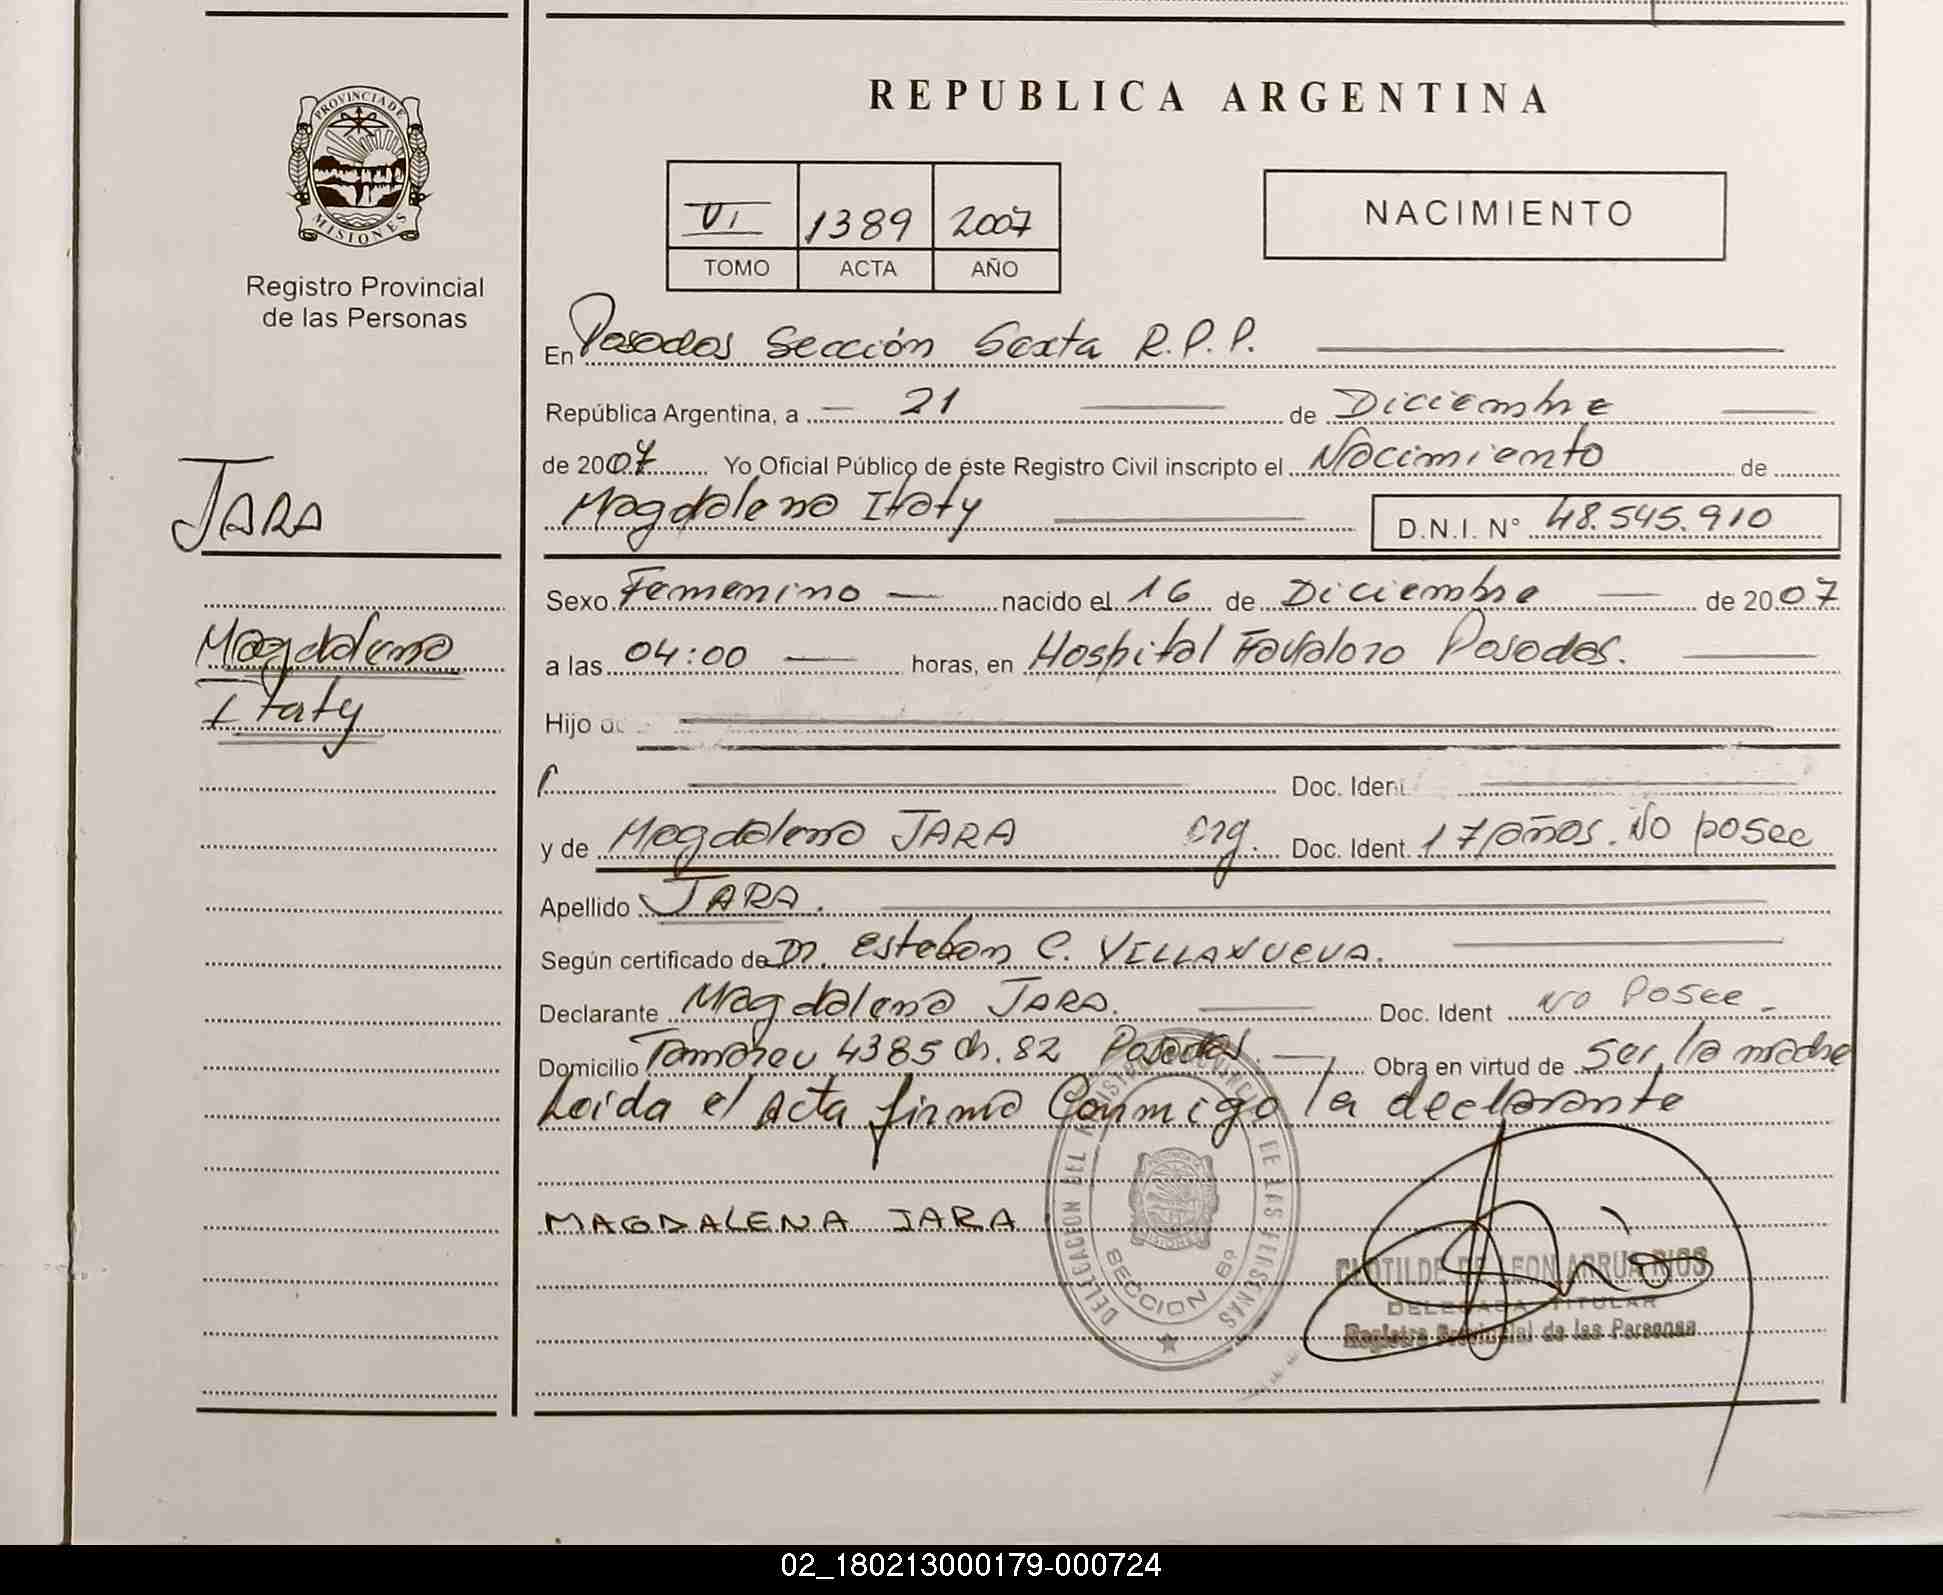 REPUBLICA ARGENTINA
PROVINCIA DE
MISIONES
Registro Provincial
de las Personas
VI 1389 2007
TOMO ACTA AÑO
NACIMIENTO
En Posadas Sección Sexta R.P.P.
República Argentina, a 21 de Diciembre
de 2007 Yo Oficial Público de éste Registro Civil inscripto el Nacimiento de
Magdalena Itaty D.N.I. N° 48.545.910
JARA
Magdalena
Itaty
Sexo Femenino nacido el 16 de Diciembre de 2007
a las 04:00 horas, en Hospital Favaloro Posadas.
Hijo de
Doc. Ident
y de Magdalena JARA arg. Doc. Ident. 17 años. No posee
Apellido JARA.
Según certificado de Dr. Esteban C. VILLANUEVA.
Declarante Magdalena JARA. Doc. Ident No Posee
Domicilio 4385 ch. 82 Posadas. Obra en virtud de ser la madre
Leida el Acta firma Conmigo la declarante
MAGDALENA JARA
DELEGACION DEL REGISTRO PROVINCIAL DE LAS PERSONAS
SECCION 6ª
CLOTILDE DE LEON ARRUA RIOS
DELEGADA TITULAR
Registro Provincial de las Personas
02_180213000179-000724